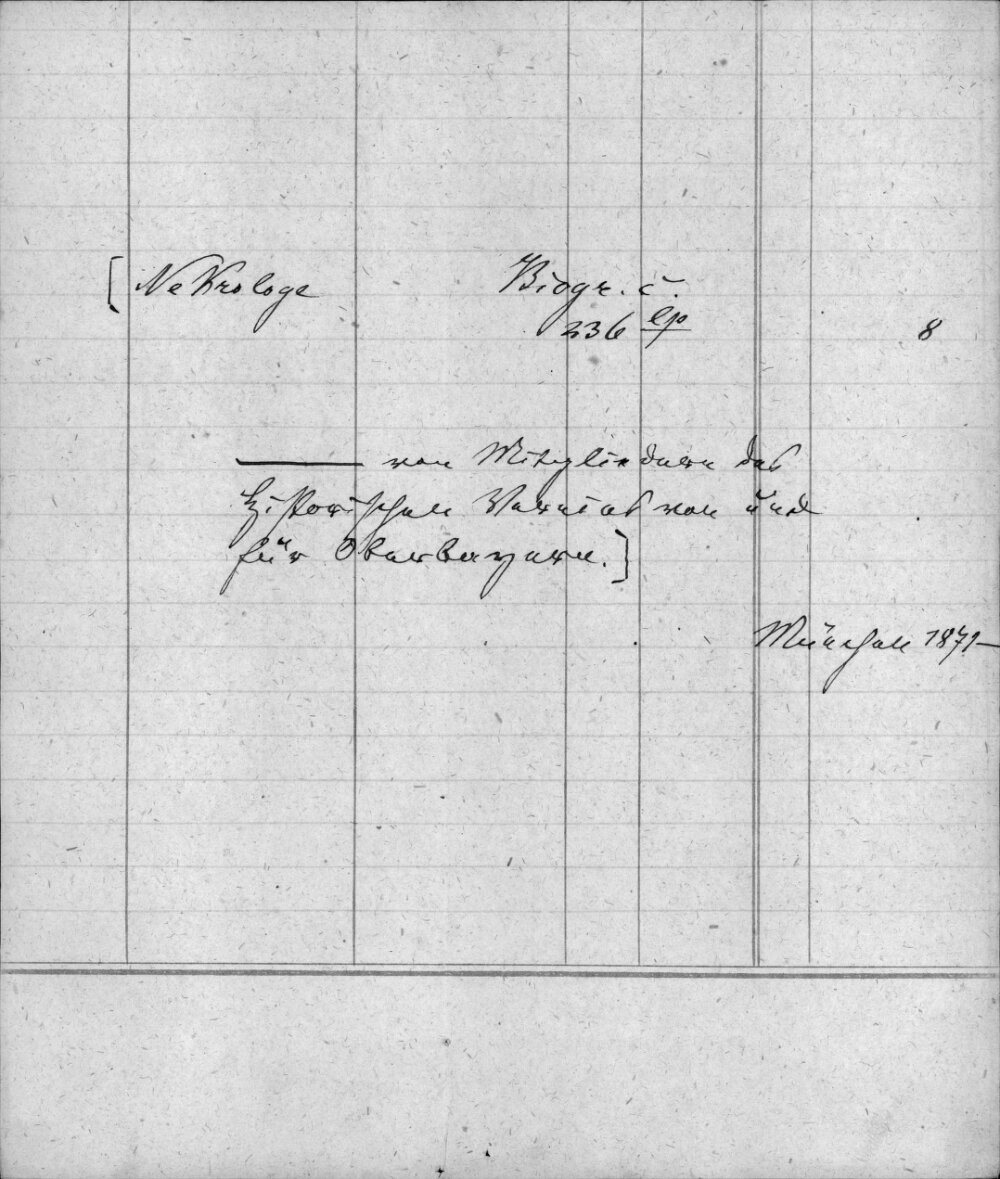 [Nekrologe Biogr. c.
236 lp 8
——— von Mitgliedern des
historischen Vereins von und
für Oberbayern.]
München 1871—